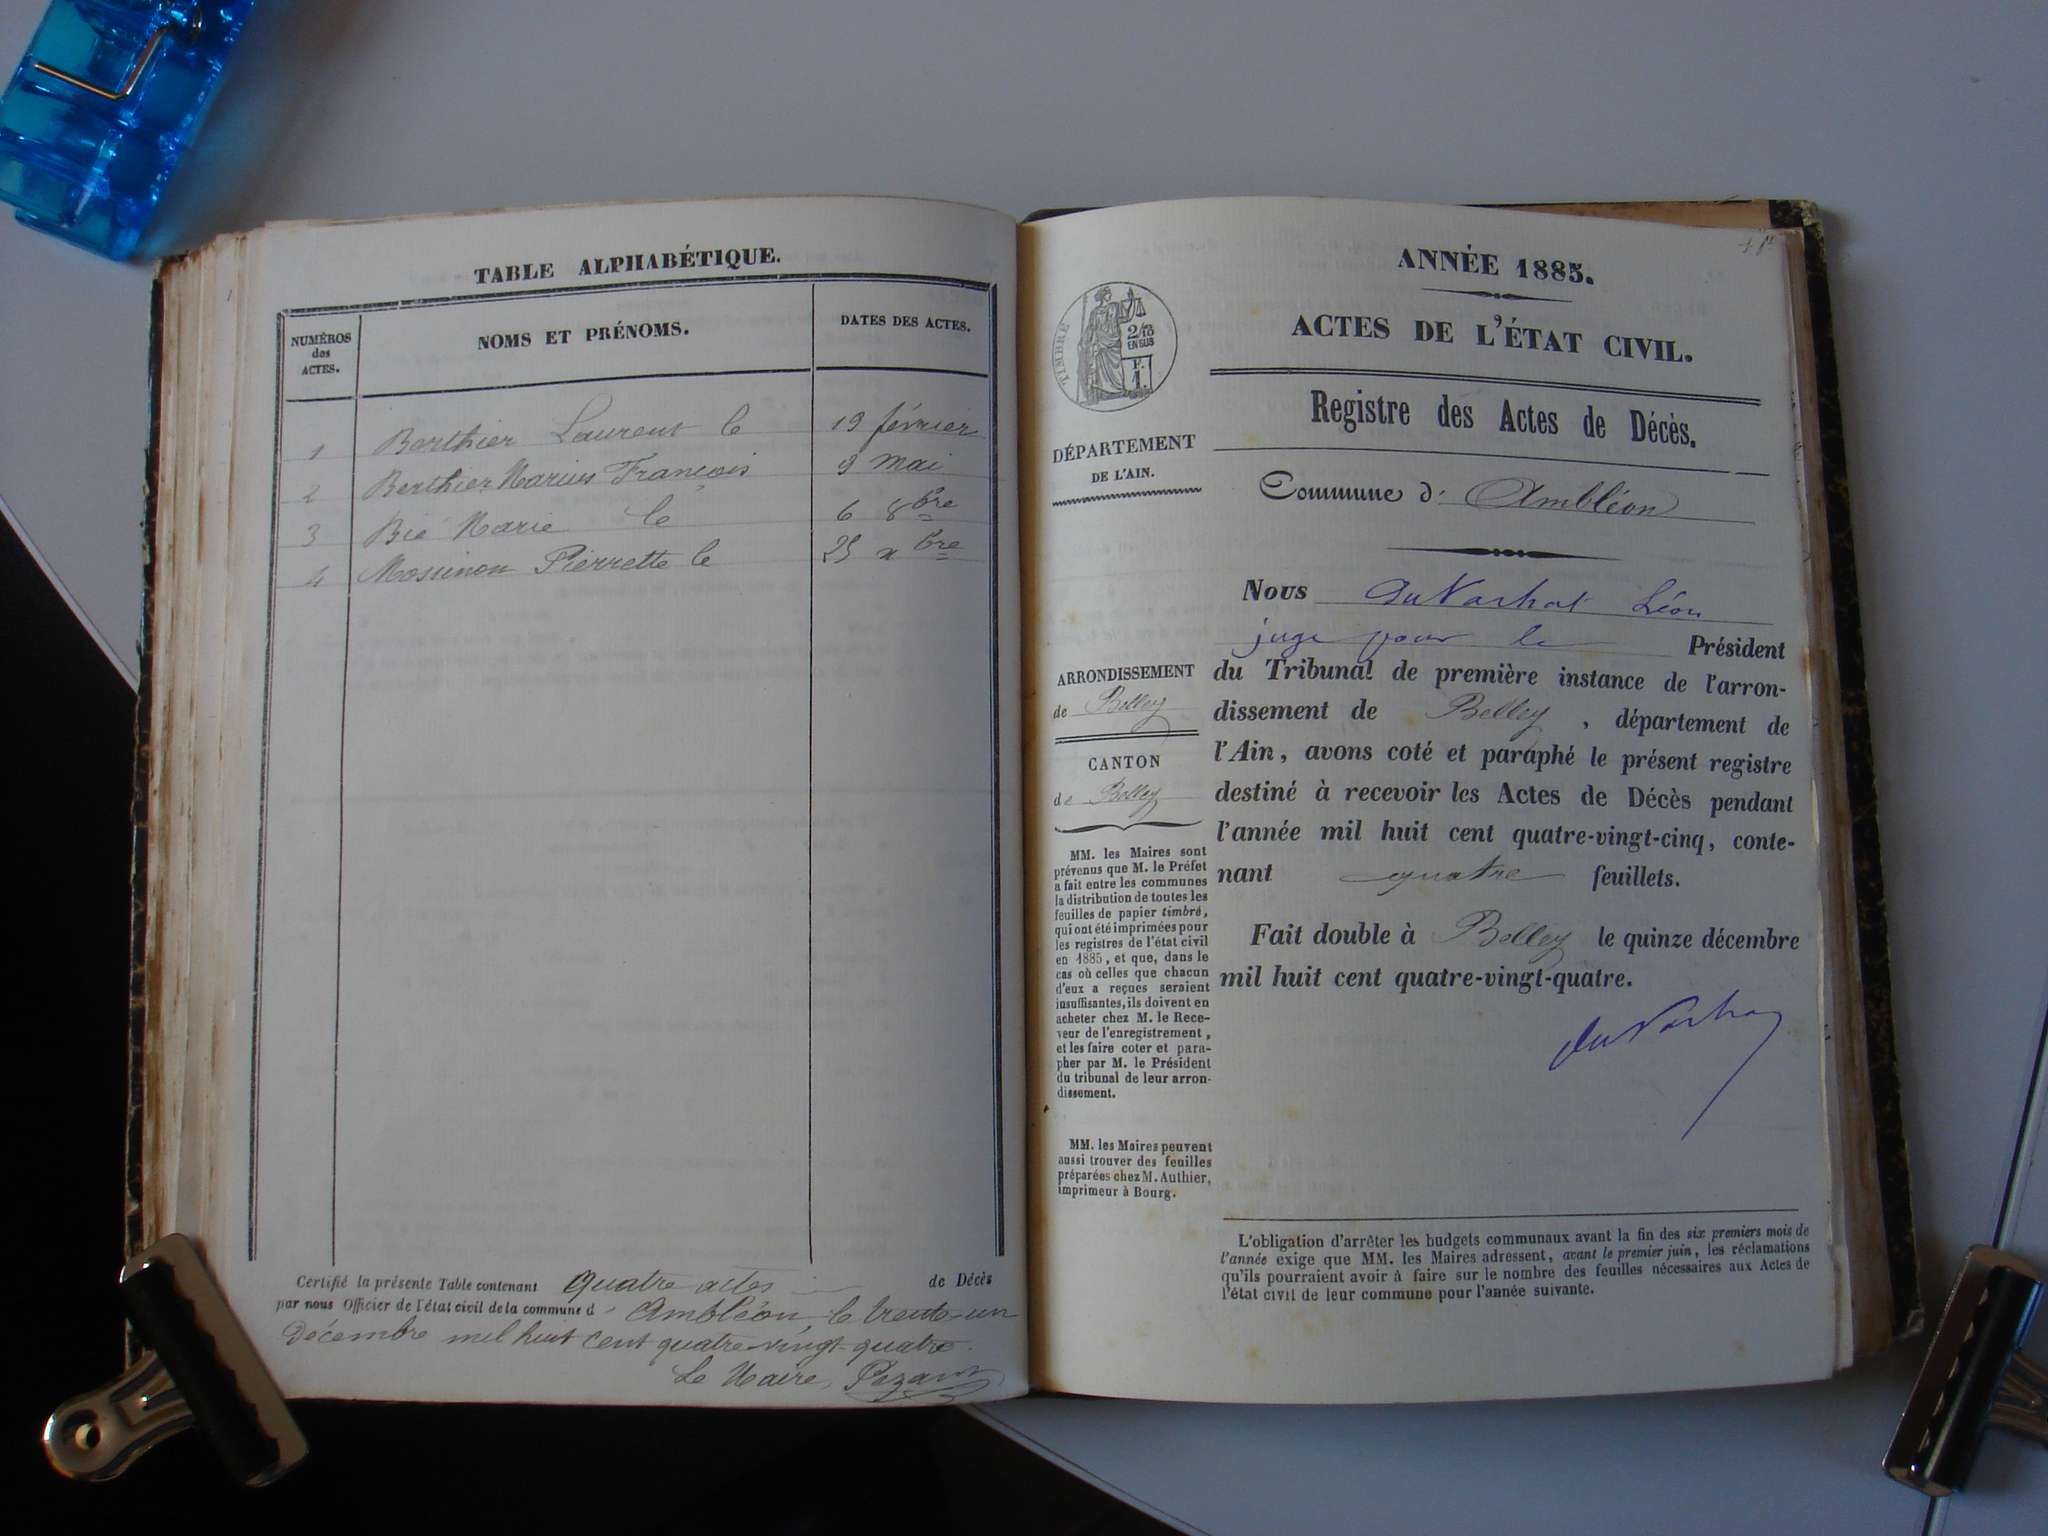 TABLE ALPHABÉTIQUE.
NUMÉROS
des
ACTES.
NOMS ET PRÉNOMS.
DATES DES ACTES.
1 Berthier Laurent le 19 février
2 Berthier Marius François 9 mai
3 Bié Marie le 6 8bre
4 Pierrette le 25 xbre
Certifié la présente Table contenant quatre actes de Décès
par nous Officier de l'état civil de la commune d' Ambléon, le trente-un
Décembre mil huit cent quatre-vingt-quatre.
Le Maire,
ANNÉE 1885.
ACTES DE L'ÉTAT CIVIL.
TIMBRE
2/10
EN SUS
F.
1.
DÉPARTEMENT
DE L'AIN.
ARRONDISSEMENT
de Belley
CANTON
de Belley
MM. les Maires sont
prévenus que M. le Préfet
a fait entre les communes
la distribution de toutes les
feuilles de papier timbré,
qui ont été imprimées pour
les registres de l'état civil
en 1885, et que, dans le
cas où celles que chacun
d'eux a reçues seraient
insuffisantes, ils doivent en
acheter chez M. le Rece-
veur de l'enregistrement,
et les faire coter et para-
pher par M. le Président
du tribunal de leur arron-
dissement.
MM. les Maires peuvent
aussi trouver des feuilles
préparées chez M. Authier,
imprimeur à Bourg.
Registre des Actes de Décès.
Commune d' Ambléon
Nous Léon
juge pour le Président
du Tribunal de première instance de l'arron-
dissement de Belley, département de
l'Ain, avons coté et paraphé le présent registre
destiné à recevoir les Actes de Décès pendant
l'année mil huit cent quatre-vingt-cinq, conte-
nant quatre feuillets.
Fait double à Belley le quinze décembre
mil huit cent quatre-vingt-quatre.
L'obligation d'arrêter les budgets communaux avant la fin des six premiers mois de
l'année exige que MM. les Maires adressent, avant le premier juin, les réclamations
qu'ils pourraient avoir à faire sur le nombre des feuilles nécessaires aux Actes de
l'état civil de leur commune pour l'année suivante.